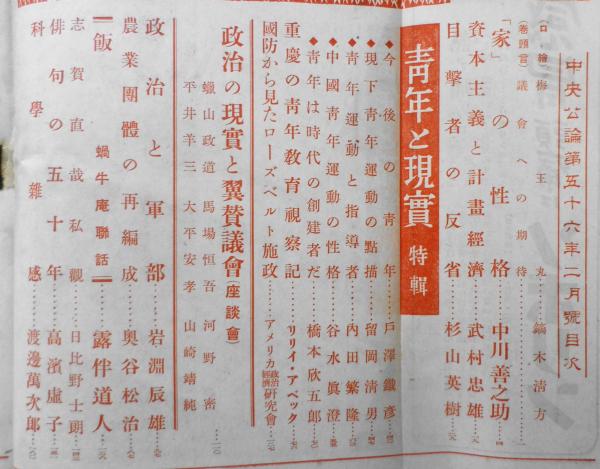 中央公論第五十六年二月號目次
(口繪)梅王丸……鏑木清方
(卷頭言)議會への期待
「家」の性格……中川善之助
資本主義と計畫經濟……武村忠雄
目擊者の反省……杉山英樹
靑年と現實 特輯
◆今後の靑年……戶澤鐵彥
◆現下靑年運動の點描……留岡淸男
◆靑年運動と指導者……內田繁隆
◆中國靑年運動の性格……谷水眞澄
◆靑年は時代の創建者だ……橋本欣五郎
重慶の靑年敎育視察記……リリイ・アベック
國防から見たローズベルト施政……アメリカ政治經濟硏究會
政治の現實と翼贊議會(座談會)
蠟山政道 馬場恒吾 河野密
平井羊三 大平安孝 山崎靖純
政治と軍部……岩淵辰雄
農業團體の再編成……奧谷松治
飯 蝸牛庵聯話……露伴道人
志賀直哉私觀……日比野士朗
俳句の五十年……高濱虛子
科學雜感……渡邊萬次郎